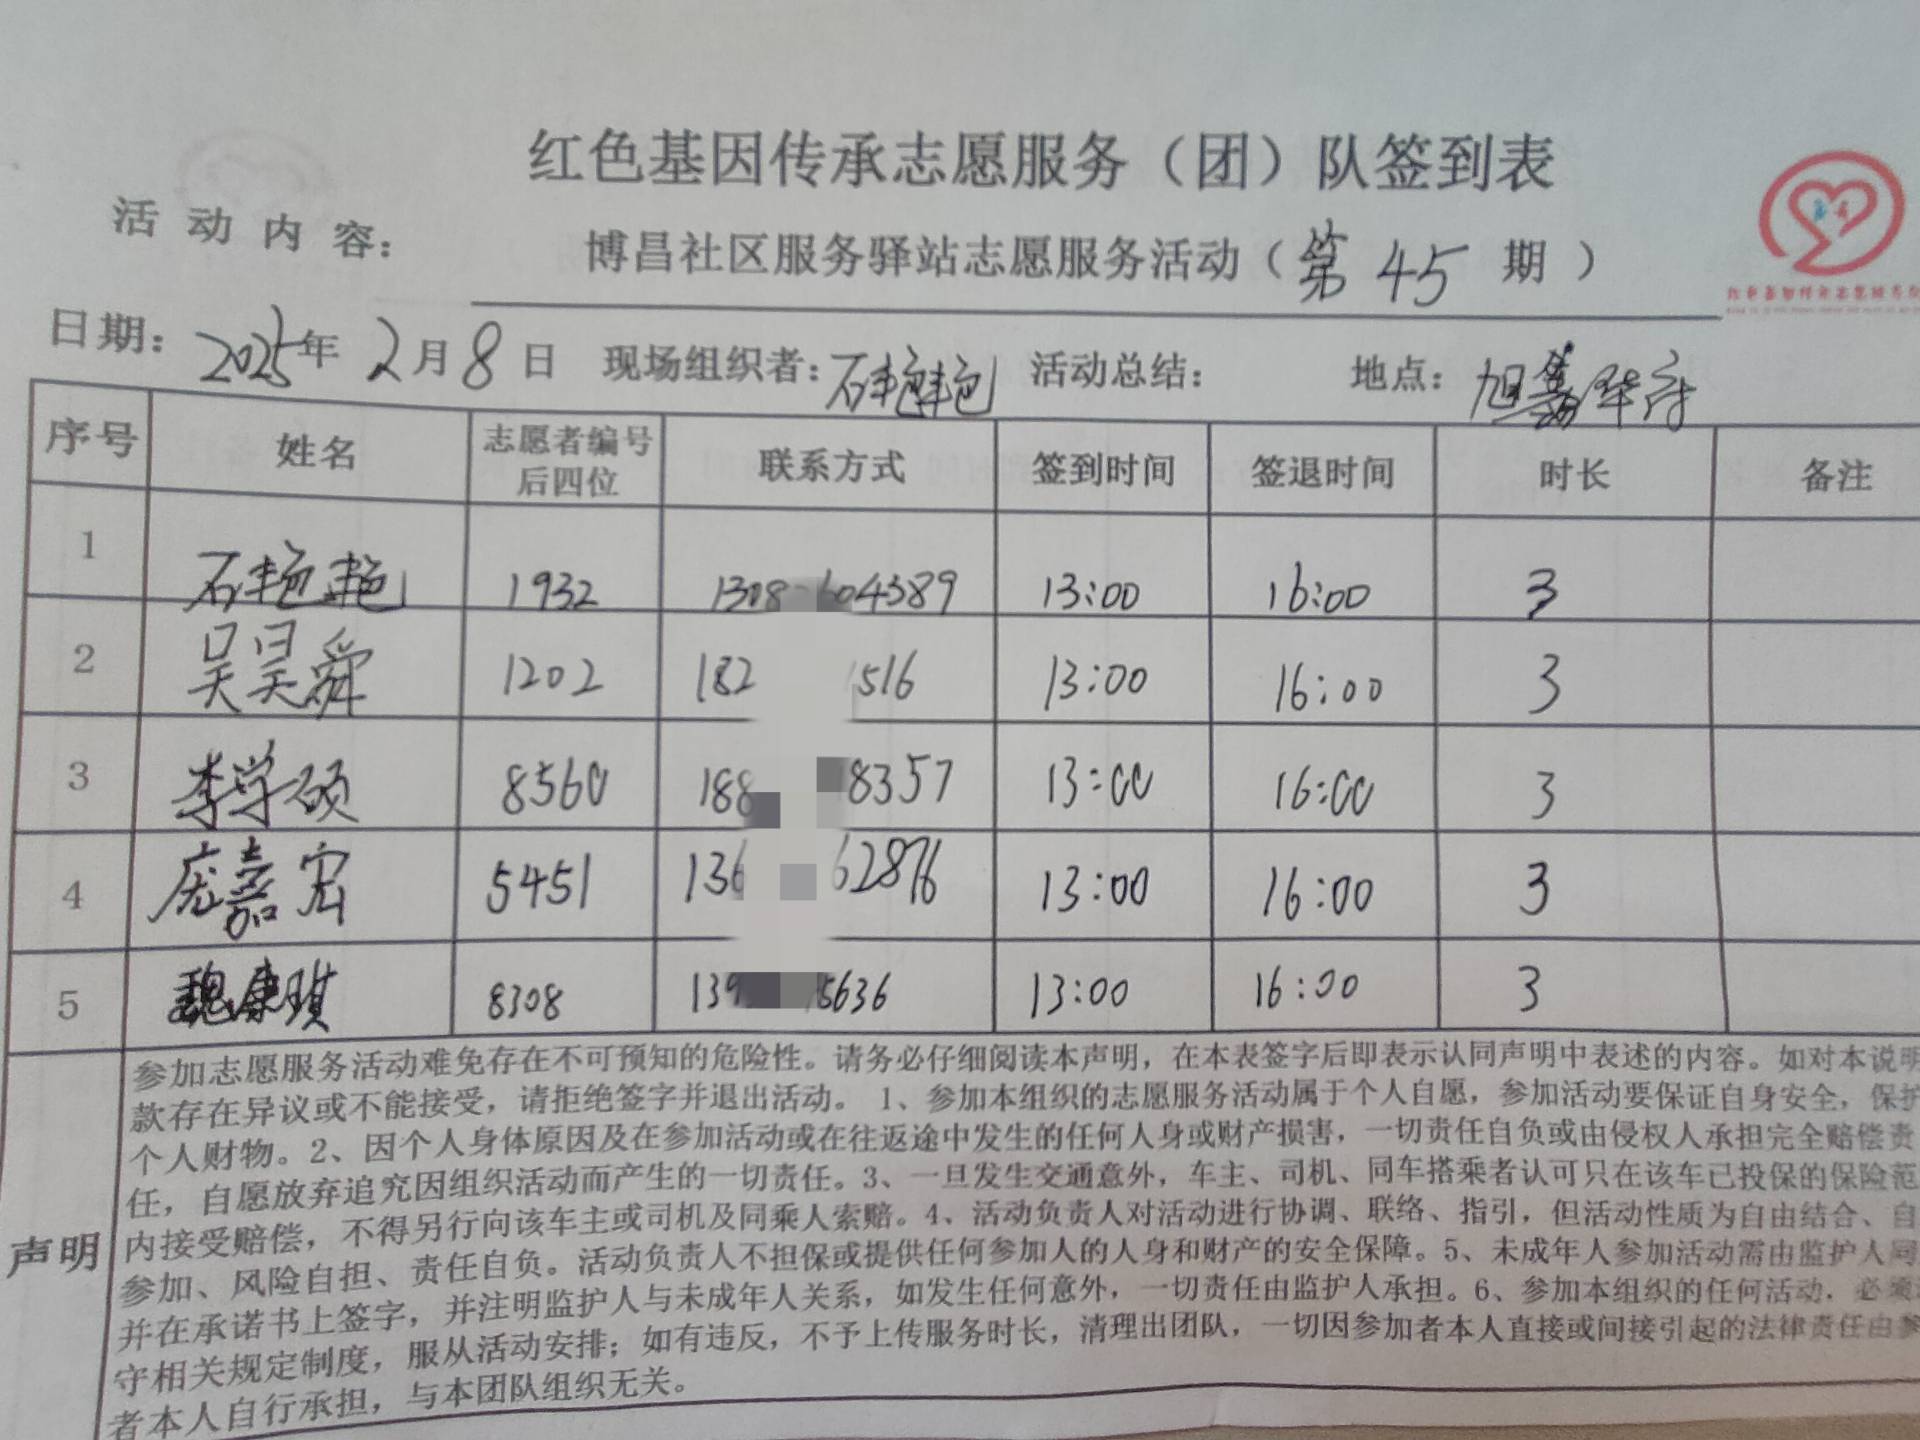 红色基因传承志愿服务（团）队签到表
活动内容： 博昌社区服务驿站志愿服务活动（第45期）
日期：2025年2月8日 现场组织者：石艳艳 活动总结： 地点：旭嘉华府
序号 姓名 志愿者编号后四位 联系方式 签到时间 签退时间 时长 备注
1 石艳艳 1932 1308 604389 13:00 16:00 3
2 吴昊舜 1202 182 1516 13:00 16:00 3
3 李学硕 8560 188 8357 13:00 16:00 3
4 庞嘉宏 5451 136 62876 13:00 16:00 3
5 魏康琪 8308 139 5636 13:00 16:00 3
声明
参加志愿服务活动难免存在不可预知的危险性。请务必仔细阅读本声明，在本表签字后即表示认同声明中表述的内容。如对本说明
款存在异议或不能接受，请拒绝签字并退出活动。 1、参加本组织的志愿服务活动属于个人自愿，参加活动要保证自身安全，保护
个人财物。2、因个人身体原因及在参加活动或在往返途中发生的任何人身或财产损害，一切责任自负或由侵权人承担完全赔偿责
任，自愿放弃追究因组织活动而产生的一切责任。3、一旦发生交通意外，车主、司机、同车搭乘者认可只在该车已投保的保险范
内接受赔偿，不得另行向该车主或司机及同乘人索赔。4、活动负责人对活动进行协调、联络、指引，但活动性质为自由结合、自
参加、风险自担、责任自负。活动负责人不担保或提供任何参加人的人身和财产的安全保障。5、未成年人参加活动需由监护人同
并在承诺书上签字，并注明监护人与未成年人关系，如发生任何意外，一切责任由监护人承担。6、参加本组织的任何活动，必须
守相关规定制度，服从活动安排；如有违反，不予上传服务时长，清理出团队，一切因参加者本人直接或间接引起的法律责任由参
者本人自行承担，与本团队组织无关。